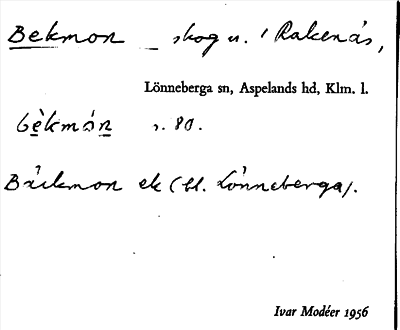 Bekmon _ skog u. i Rakenäs,
Lönneberga sn, Aspelands hd, Klm. l.
bèkmón s. 80.
Bäckmon ek (bl. Lönneberga).
Ivar Modéer 1956